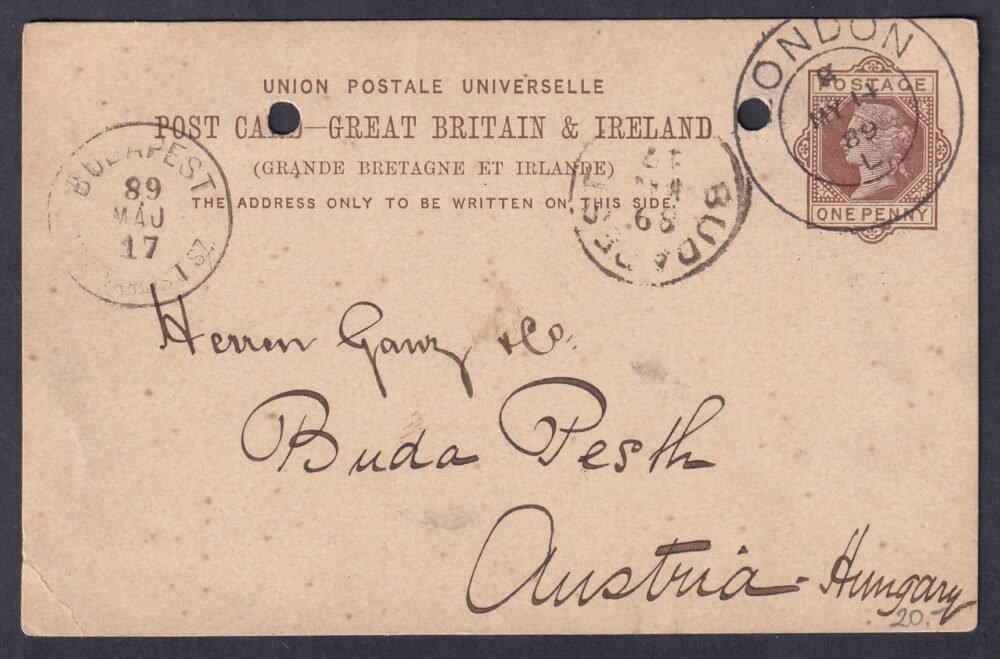 UNION POSTALE UNIVERSELLE
POST CARD—GREAT BRITAIN & IRELAND
(GRANDE BRETAGNE ET IRLANDE)
THE ADDRESS ONLY TO BE WRITTEN ON THIS SIDE.
LONDON
MY 14
89
L
POSTAGE
ONE PENNY
BUDAPEST
89
MAJ
17
BUDAPEST
89
17
Herren Ganz & Co.
Buda Pesth
Austria-Hungary
20.-